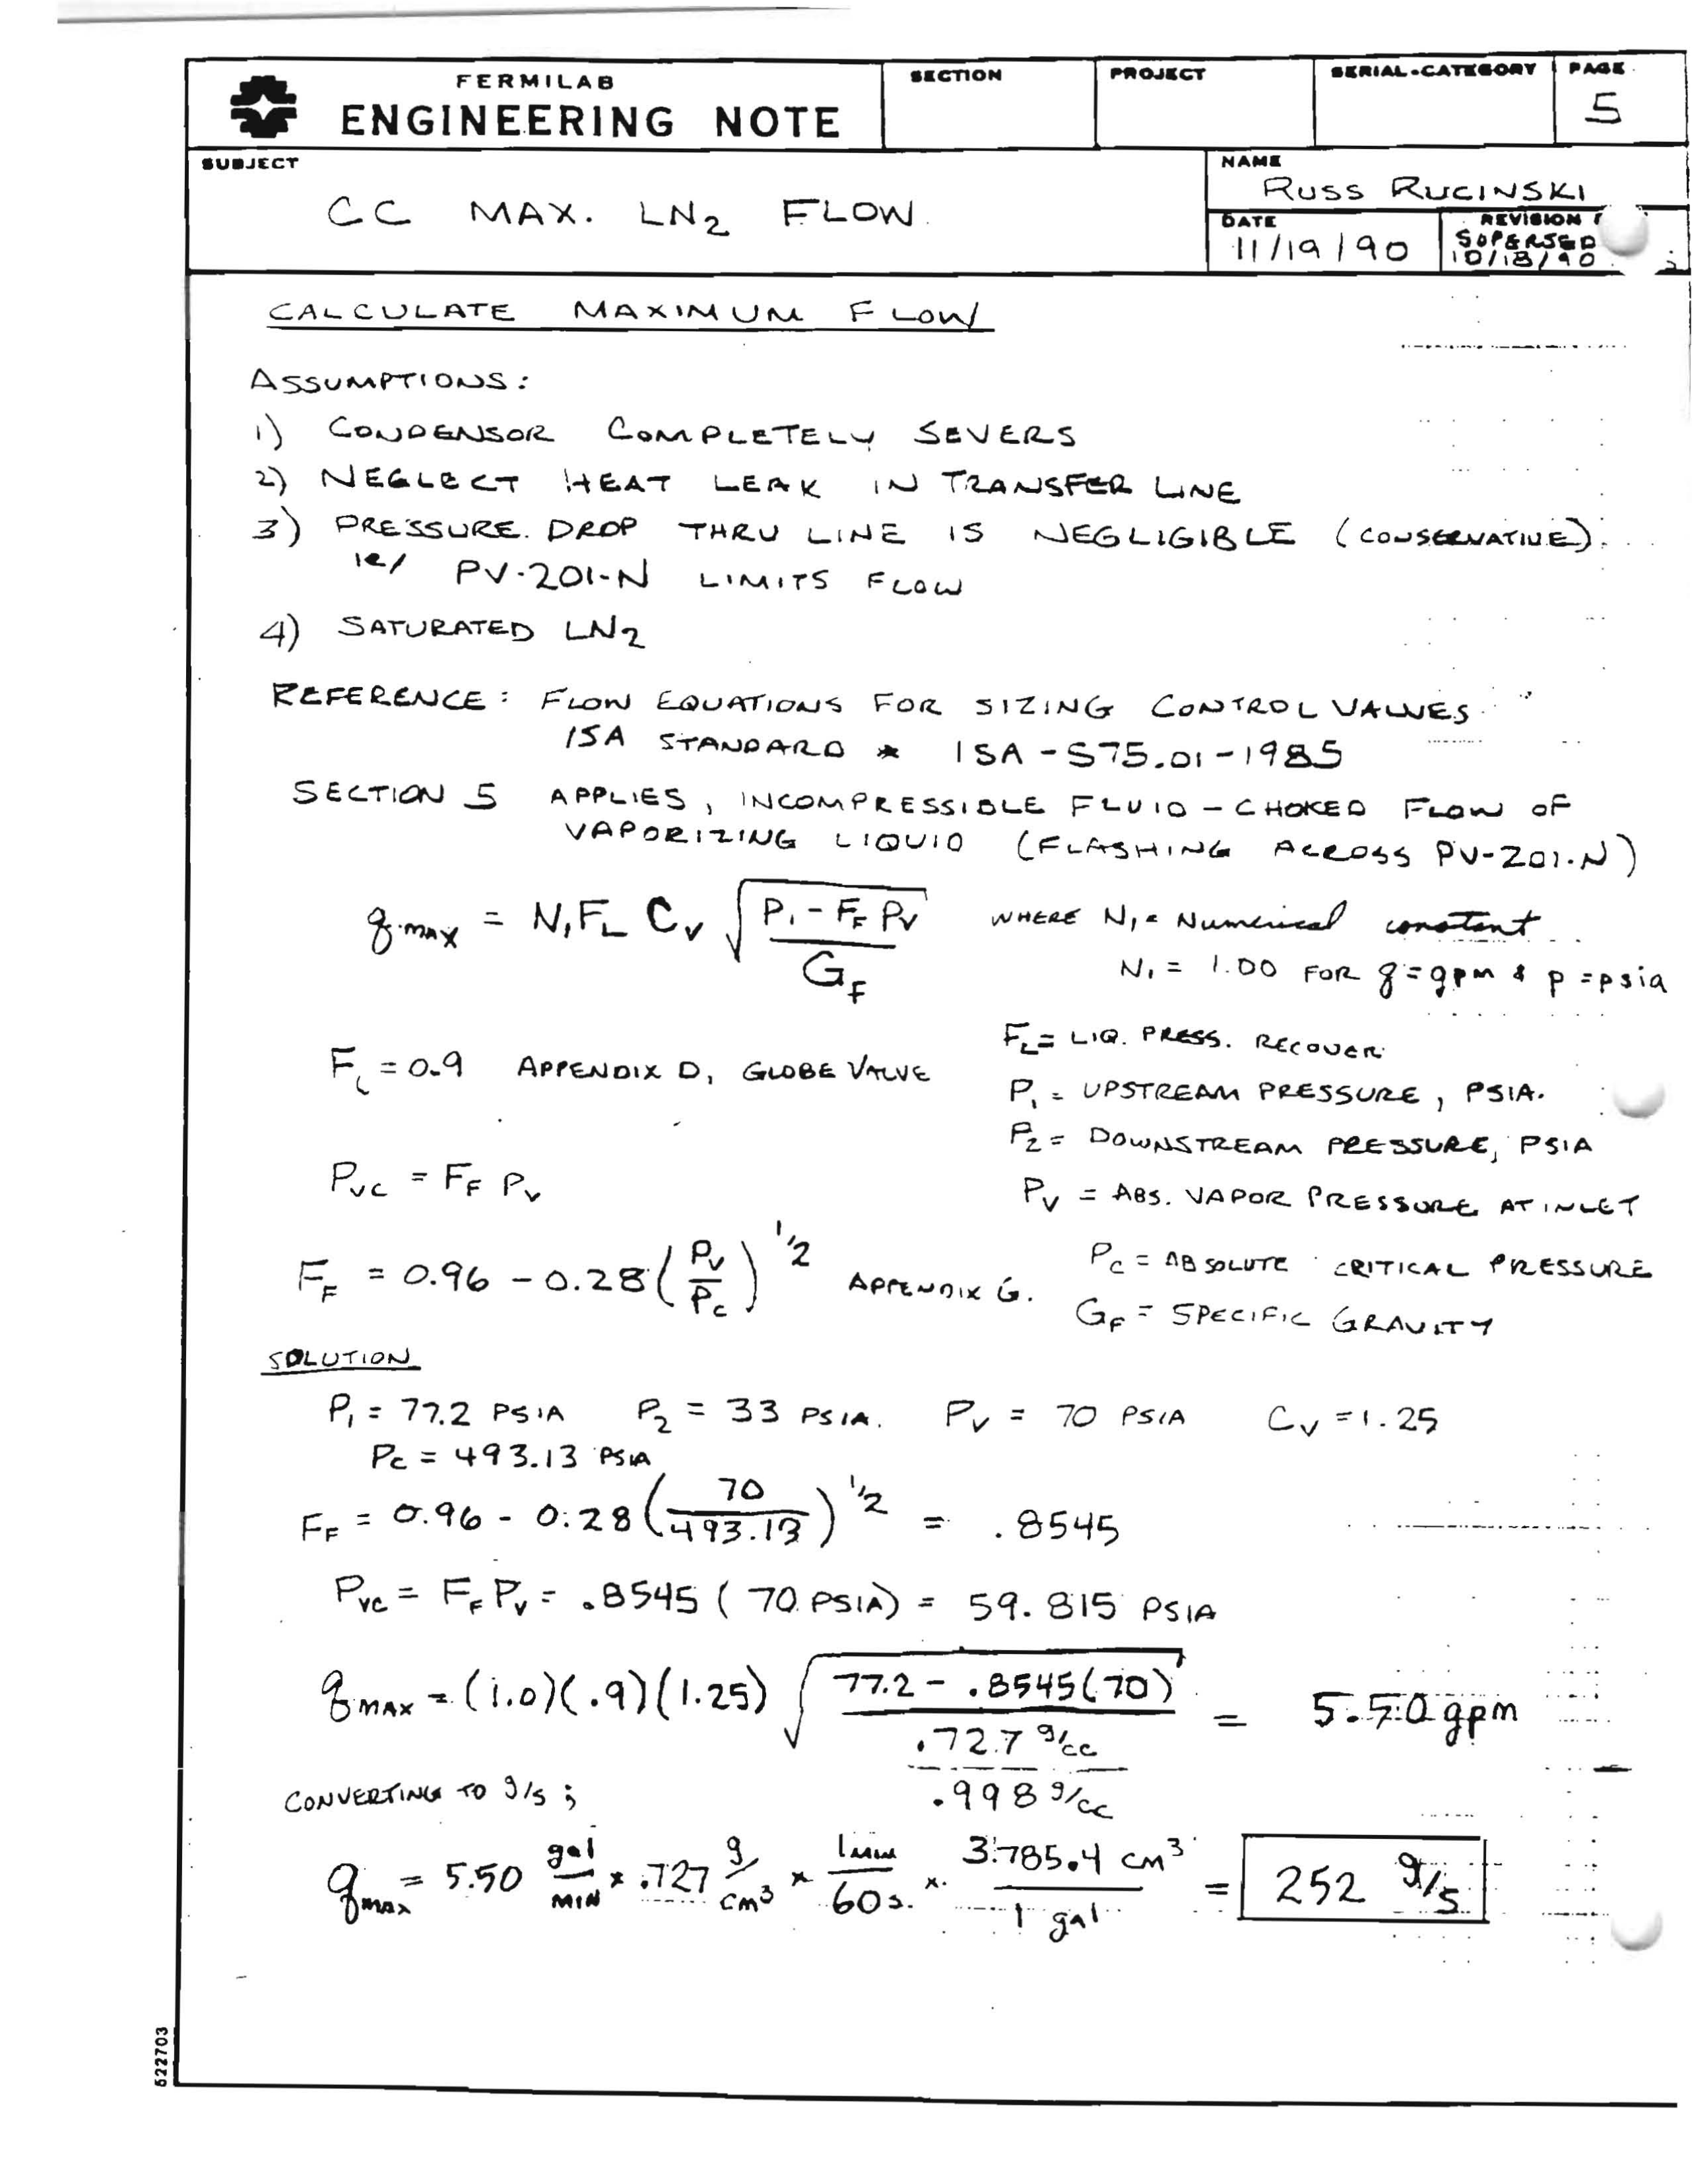 FERMILAB
ENGINEERING NOTE
SECTION
PROJECT
SERIAL-CATEGORY
PAGE
5
SUBJECT
CC MAX. LN2 FLOW
NAME
RUSS RUCINSKI
DATE
11/19/90
REVISION
SUPERSED
10/18/90
CALCULATE MAXIMUM FLOW
ASSUMPTIONS:
1) CONDENSOR COMPLETELY SEVERS
2) NEGLECT HEAT LEAK IN TRANSFER LINE
3) PRESSURE DROP THRU LINE IS NEGLIGIBLE (CONSERVATIVE)
ie/ PV-201-N LIMITS FLOW
4) SATURATED LN2
REFERENCE: FLOW EQUATIONS FOR SIZING CONTROL VALVES
ISA STANDARD * ISA-S75.01-1985
SECTION 5 APPLIES, INCOMPRESSIBLE FLUID - CHOKED FLOW OF
VAPORIZING LIQUID (FLASHING ACROSS PV-201-N)
q max = N1 FL CV √((P1 - FF PV)/GF) WHERE N1 = Numerical constant
N1 = 1.00 FOR q = gpm & p = psia
FL = LIQ. PRESS. RECOVER
FL = 0.9 APPENDIX D, GLOBE VALVE
P1 = UPSTREAM PRESSURE, PSIA.
P2 = DOWNSTREAM PRESSURE, PSIA
PVC = FF PV
PV = ABS. VAPOR PRESSURE AT INLET
FF = 0.96 - 0.28 (PV/PC)^1/2 APPENDIX G.
PC = ABSOLUTE CRITICAL PRESSURE
GF = SPECIFIC GRAVITY
SOLUTION
P1 = 77.2 PSIA P2 = 33 PSIA. PV = 70 PSIA CV = 1.25
PC = 493.13 PSIA
FF = 0.96 - 0.28 (70/493.13)^1/2 = .8545
PVC = FF PV = .8545 (70 PSIA) = 59.815 PSIA
q MAX = (1.0)(.9)(1.25) √((77.2 - .8545(70))/(.727 g/cc / .998 g/cc)) = 5.50 gpm
CONVERTING TO g/s;
q max = 5.50 gal/MIN × .727 g/cm3 × 1 min/60 s. × 3785.4 cm3/1 gal = 252 g/s
522703